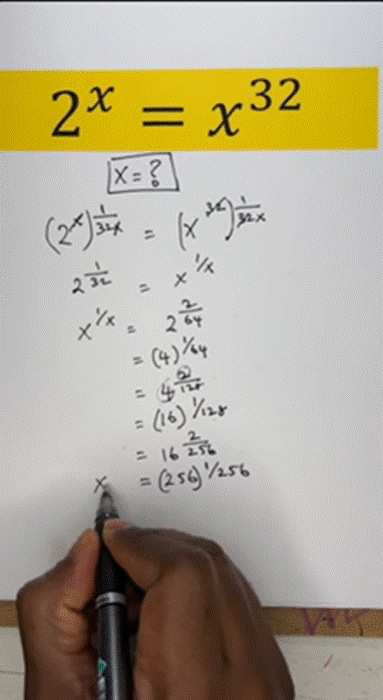 2^x = x^32
x = ?
(2^x)^(1/32x) = (x^32)^(1/32x)
2^(1/32) = x^(1/x)
x^(1/x) = 2^(2/64)
= (4)^(1/64)
= 4^(2/128)
= (16)^(1/128)
= 16^(2/256)
x = (256)^(1/256)